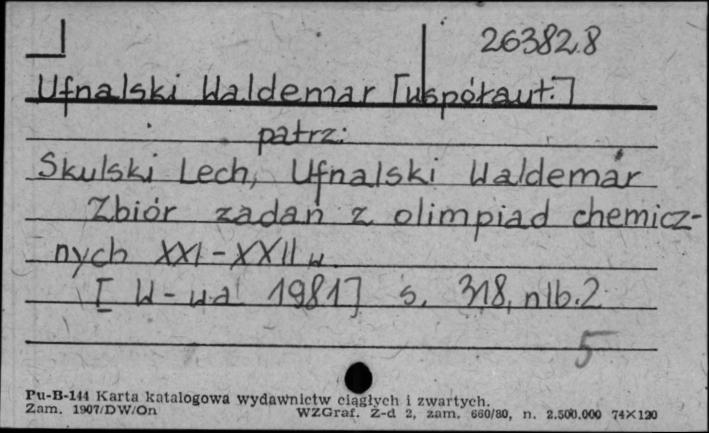 263828
Ufnalski Waldemar [współaut.]
patrz:
Skulski Lech, Ufnalski Waldemar
Zbiór zadań z olimpiad chemicz-
nych XXI-XXII w.
[W-wa 1981] s. 318, nlb. 2
5
Pu-B-144 Karta katalogowa wydawnictw ciągłych i zwartych.
Zam. 1907/DW/On WZGraf. Z-d 2, zam. 660/80, n. 2.500.000 74×120